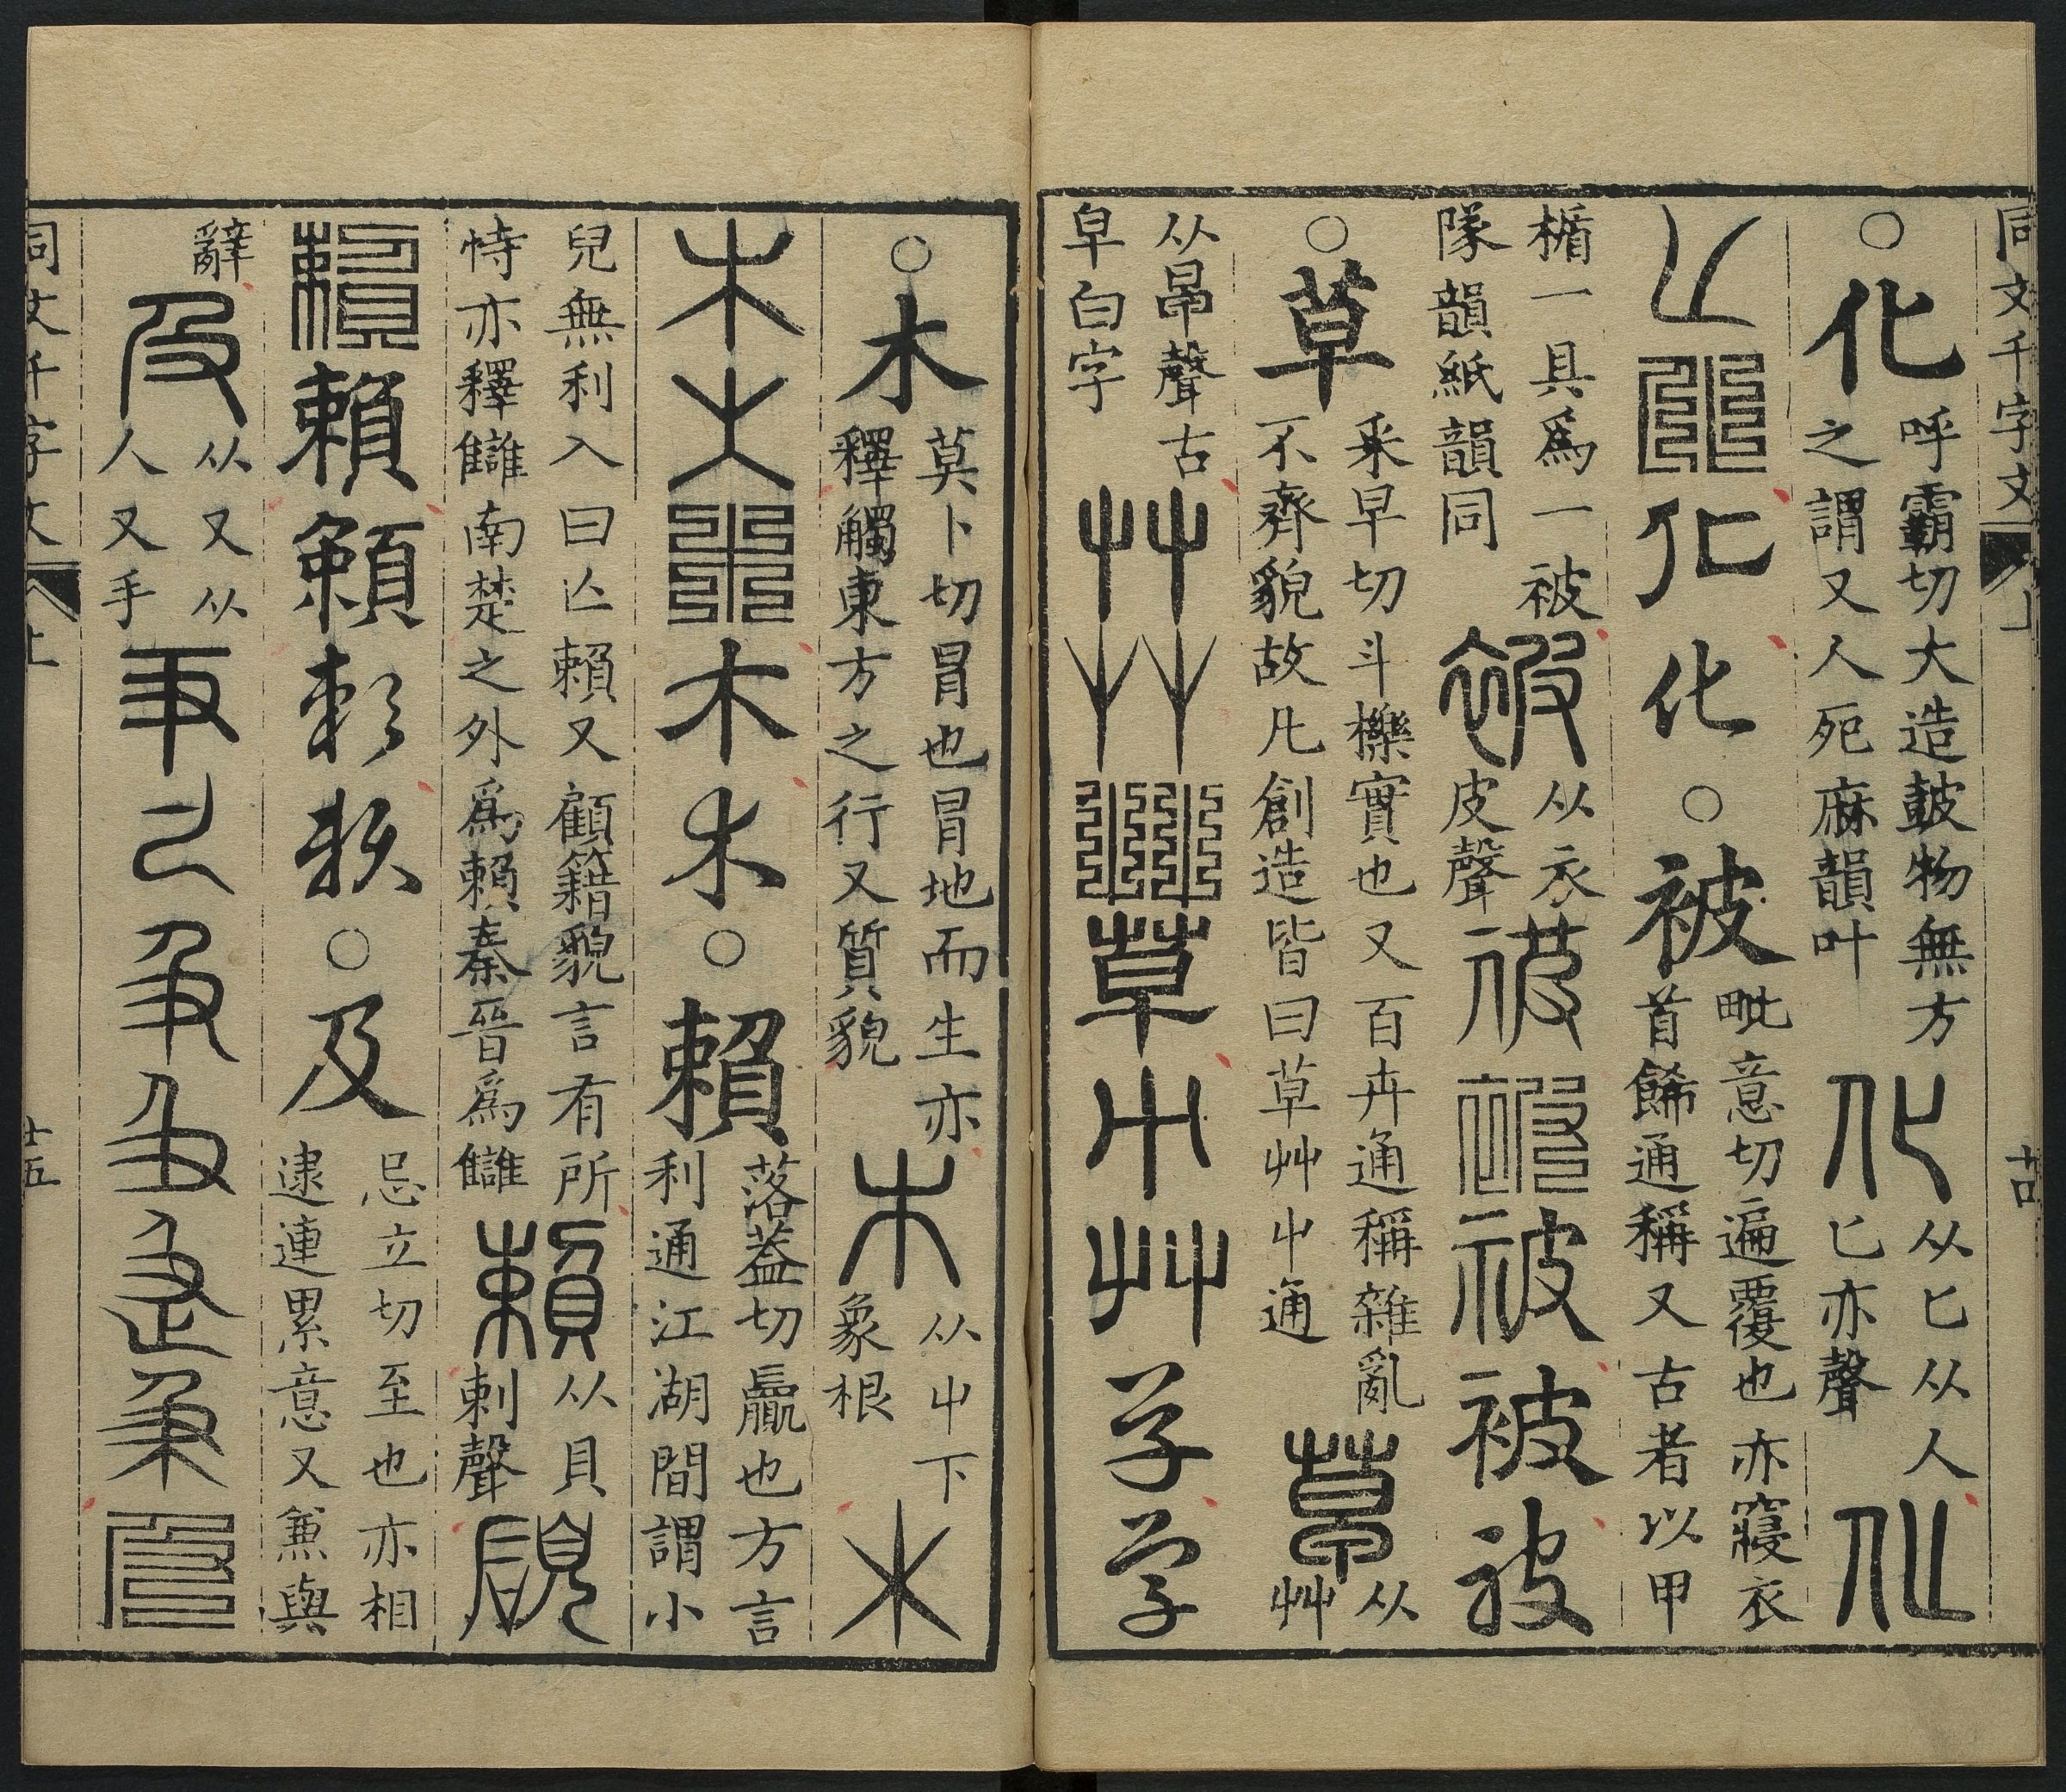 同文千字文 上 十四
○化 呼霸切大造鼓物無方
之謂又人死麻韻叶
化 从匕从人
匕亦聲
化
化 化 化 化
○被 毗意切遍覆也亦寢衣
首餙通稱又古者以甲
楯一具爲一被
隊韻紙韻同
被 从衣
皮聲
被 被 被 被 被
○草 采早切斗櫟實也又百卉通稱雜亂
不齊貌故凡創造皆曰草艸屮通
草 从
艸
从早聲古
皁白字
艸 艸 艸 草 屮 艸 草 草
○木 莫卜切冒也冒地而生亦
釋觸東方之行又質貌
木 从屮下
象根
木
木 木 木 木 木
○賴 落蓋切贏也方言
利通江湖間謂小
兒無利入曰亾賴又顧籍貌言有所
恃亦釋讎南楚之外爲賴秦晉爲讎
賴 从貝
剌聲
賴 賴 賴 賴 賴
○及 忌立切至也亦相
逮連累意又兼與
辭
及 从又从
人又手
及 及 及 及 及 及 及
同文千字文 上 十五